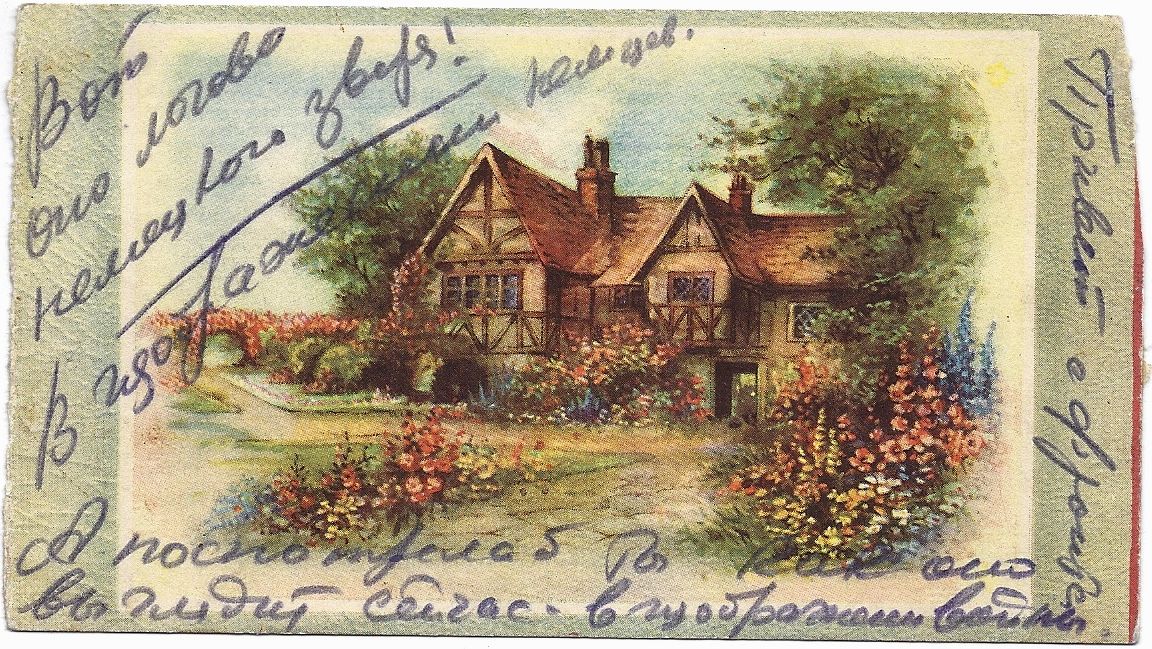 Вот
оно логово
немецкого зверя!
В изображении немцев.
А посмотрела б Ты как оно
выглядит сейчас - в изображении войны.
Привет с фронта